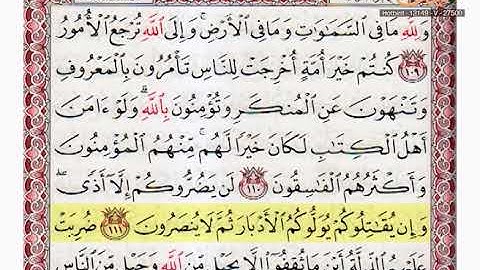 Hotbird - 12149 - V - 27500
وَلِلَّهِ مَا فِي السَّمَٰوَٰتِ وَمَا فِي الْأَرْضِ ۚ وَإِلَى اللَّهِ تُرْجَعُ الْأُمُورُ
﴿١٠٩﴾ كُنتُمْ خَيْرَ أُمَّةٍ أُخْرِجَتْ لِلنَّاسِ تَأْمُرُونَ بِالْمَعْرُوفِ
وَتَنْهَوْنَ عَنِ الْمُنكَرِ وَتُؤْمِنُونَ بِاللَّهِ ۗ وَلَوْ ءَامَنَ
أَهْلُ الْكِتَٰبِ لَكَانَ خَيْرًا لَّهُم ۚ مِّنْهُمُ الْمُؤْمِنُونَ
وَأَكْثَرُهُمُ الْفَٰسِقُونَ ﴿١١٠﴾ لَن يَضُرُّوكُمْ إِلَّا أَذًى ۖ
وَإِن يُقَٰتِلُوكُمْ يُوَلُّوكُمُ الْأَدْبَارَ ثُمَّ لَا يُنصَرُونَ ﴿١١١﴾ ضُرِبَتْ
عَلَيْهِمُ الذِّلَّةُ أَيْنَ مَا ثُقِفُوا إِلَّا بِحَبْلٍ مِّنَ اللَّهِ وَحَبْلٍ مِّنَ النَّاسِ